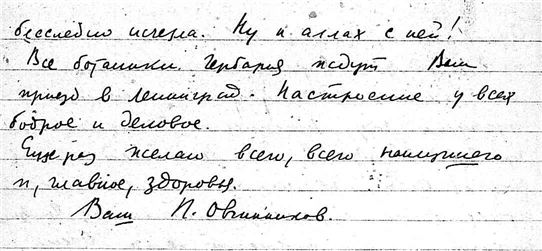 бесследно исчезла. Ну и аллах с ней!
Все ботаники Гербария ждут Ваш
приезд в Ленинград. Настроение у всех
бодрое и деловое.
Еще раз желаю всего, всего наилучшего
и, главное, здоровья.
Ваш П. Овчинников.